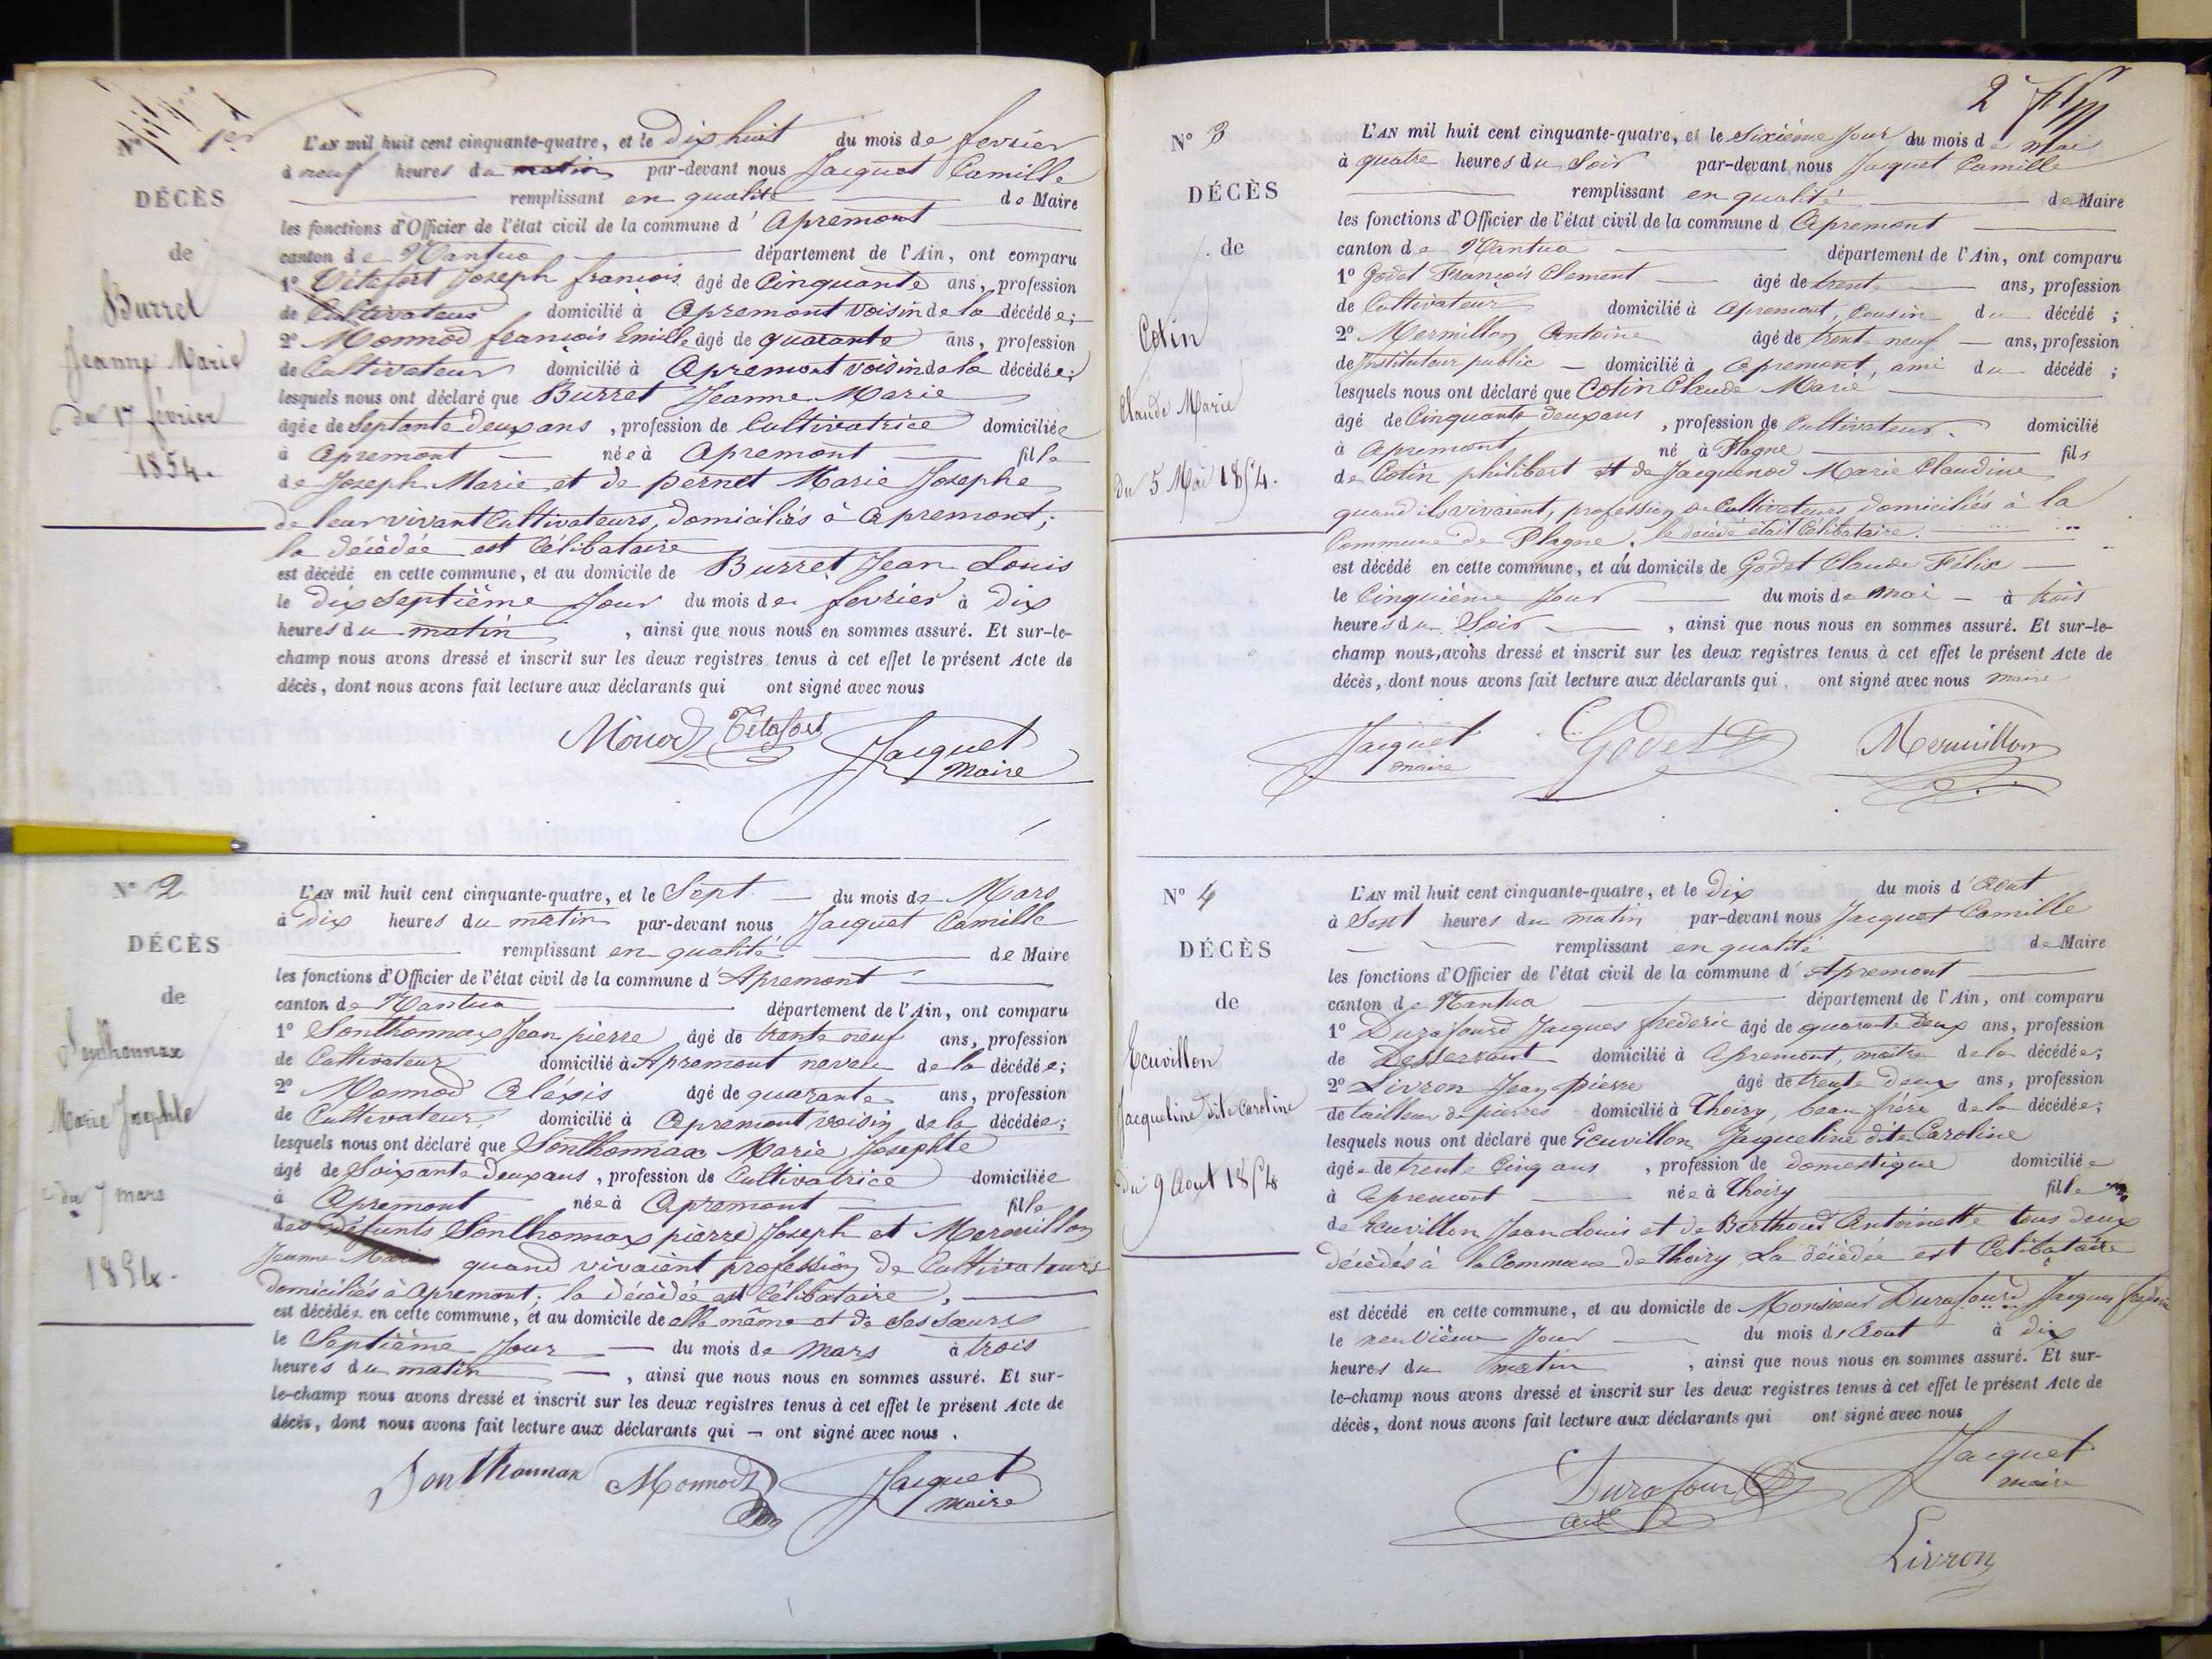 N° 1er
DÉCÈS
de
Burret
Jeanne Marie
du 17 février
1854.
L'AN mil huit cent cinquante-quatre, et le Dix huit du mois de fevrier
à neuf heures du matin par-devant nous Jacquet Camille
remplissant en qualité de Maire
les fonctions d'Officier de l'état civil de la commune d'Apremont
canton de Nantua département de l'Ain, ont comparu
1° Tétafort Joseph francois âgé de Cinquante ans, profession
de Cultivateur domicilié à Apremont voisin de la décédée;
2° Monnod francois Emille âgé de quarante ans, profession
de Cultivateur domicilié à Apremont voisin de la décédée;
lesquels nous ont déclaré que Burret Jeanne Marie
âgée de Septante Deux ans, profession de Cultivatrice domiciliée
à Apremont née à Apremont fille
de Joseph Marie et de pernet Marie Josephe
de leur vivant Cultivateurs, domiciliés à Apremont;
la décédée est Célibataire
est décédé en cette commune, et au domicile de Burret Jean Louis
le Dix Septième Jour du mois de fevrier à Dix
heures du matin, ainsi que nous nous en sommes assuré. Et sur-le-
champ nous avons dressé et inscrit sur les deux registres tenus à cet effet le présent Acte de
décès, dont nous avons fait lecture aux déclarants qui ont signé avec nous
Monod Tétafort Jacquet
maire
N° 2
DÉCÈS
de
Sonthonnax
Marie Josephte
du 7 mars
1854.
L'AN mil huit cent cinquante-quatre, et le Sept du mois de Mars
à Dix heures du matin par-devant nous Jacquet Camille
remplissant en qualité de Maire
les fonctions d'Officier de l'état civil de la commune d'Apremont
canton de Nantua département de l'Ain, ont comparu
1° Sonthonnax Jean pierre âgé de trente neuf ans, profession
de Cultivateur domicilié à Apremont neveu de la décédée;
2° Monnod Aléxis âgé de quarante ans, profession
de Cultivateur, domicilié à Apremont voisin de la décédée;
lesquels nous ont déclaré que Sonthonnax Marie Josephte
âgé de Soixante Deux ans, profession de Cultivatrice domiciliée
à Apremont née à Apremont fille
des Défunts Sonthonnax pierre Joseph et Mermillon
Jeanne Marie quand vivaient profession de Cultivateurs
domiciliés à Apremont; la décédée est Célibataire,
est décédée en cette commune, et au domicile de elle même et de ses soeurs
le Septième Jour du mois de Mars à trois
heures du matin, ainsi que nous nous en sommes assuré. Et sur-
le-champ nous avons dressé et inscrit sur les deux registres tenus à cet effet le présent Acte de
décès, dont nous avons fait lecture aux déclarants qui – ont signé avec nous.
Sonthonnax Monnod Jacquet
maire
2
N° 3
DÉCÈS
de
Cotin
Claude Marie
du 5 Mai 1854.
L'AN mil huit cent cinquante-quatre, et le Sixième Jour du mois de mai
à quatre heures du Soir par-devant nous Jacquet Camille
remplissant en qualité de Maire
les fonctions d'Officier de l'état civil de la commune d Apremont
canton de Nantua département de l'Ain, ont comparu
1° Godet François Clement âgé de trente ans, profession
de Cultivateur domicilié à Apremont, Cousin du décédé;
2° Mermillon Antoine âgé de trente neuf ans, profession
de Instituteur public domicilié à Apremont, ami du décédé;
lesquels nous ont déclaré que Cotin Claude Marie
âgé de Cinquante deux ans, profession de Cultivateur. domicilié
à Apremont né à Plagne fils
de Cotin philibert et de Jacquenod Marie Claudine
quand ils vivaient, profession de Cultivateurs domiciliés à la
Commune de Plagne. le décédé était Célibataire.
est décédé en cette commune, et au domicile de Godet Claude Félix
le Cinquième Jour du mois de Mai à trois
heures du Soir, ainsi que nous nous en sommes assuré. Et sur-le-
champ nous avons dressé et inscrit sur les deux registres tenus à cet effet le présent Acte de
décès, dont nous avons fait lecture aux déclarants qui ont signé avec nous maire
Jacquet Godet Mermillon
maire
N° 4
DÉCÈS
de
Ecuvillon
Jacqueline dite Caroline
du 9 Aout 1854
L'AN mil huit cent cinquante-quatre, et le Dix du mois d'Aout
à Sept heures du matin par-devant nous Jacquet Camille
remplissant en qualité de Maire
les fonctions d'Officier de l'état civil de la commune d'Apremont
canton de Nantua département de l'Ain, ont comparu
1° Durafourd Jacques frederic âgé de quarante deux ans, profession
de Desservant domicilié à Apremont, maitre de la décédée;
2° Livron Jean pierre âgé de trente deux ans, profession
de tailleur de pierres domicilié à Thoiry, beau frére de la décédée;
lesquels nous ont déclaré que Ecuvillon Jacqueline dite Caroline
âgée de trente Cinq ans, profession de domestique domiciliée
à Apremont née à Thoiry fille
de Ecuvillon Jean Louis et de Berthoud Antoinette tous deux
décédés à la Commune de Thoiry La décédée est Célibataire
est décédé en cette commune, et au domicile de Monsieur Durafourd Jacques frederic
le neuvième Jour du mois d'Aout à dix
heures du matin, ainsi que nous nous en sommes assuré. Et sur-
le-champ nous avons dressé et inscrit sur les deux registres tenus à cet effet le présent Acte de
décès, dont nous avons fait lecture aux déclarants qui ont signé avec nous
Durafourd Jacquet
maire
Livron